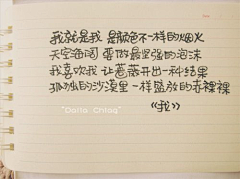 我就是我 是颜色不一样的烟火
天空海阔 要做最坚强的泡沫
我喜欢我 让蔷薇开出一种结果
孤独的沙漠里 一样盛放的赤裸裸
《我》